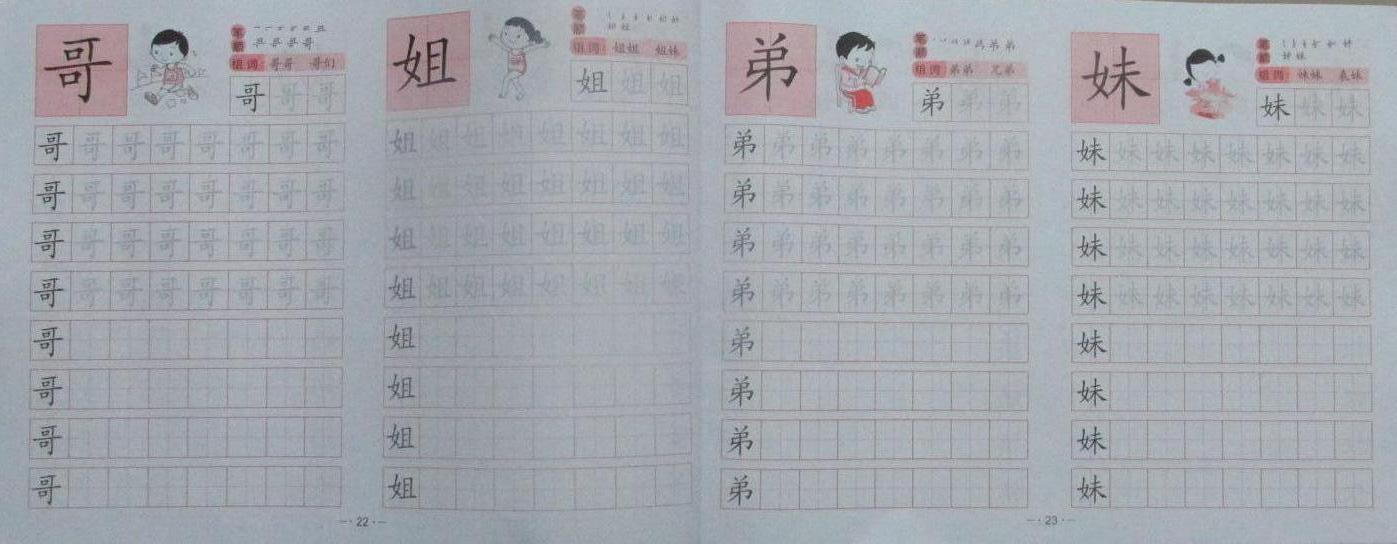 哥
笔顺
组词 哥哥 哥们
哥 哥 哥
哥 哥 哥 哥 哥 哥 哥 哥
哥 哥 哥 哥 哥 哥 哥 哥
哥 哥 哥 哥 哥 哥 哥 哥
哥 哥 哥 哥 哥 哥 哥 哥
哥
哥
哥
哥
姐
笔顺
组词 姐姐 姐妹
姐 姐 姐
姐 姐 姐 姐 姐 姐 姐 姐
姐 姐 姐 姐 姐 姐 姐 姐
姐 姐 姐 姐 姐 姐 姐 姐
姐 姐 姐 姐 姐 姐 姐 姐
姐
姐
姐
姐
22
弟
笔顺
组词 弟弟 兄弟
弟 弟 弟
弟 弟 弟 弟 弟 弟 弟 弟
弟 弟 弟 弟 弟 弟 弟 弟
弟 弟 弟 弟 弟 弟 弟 弟
弟 弟 弟 弟 弟 弟 弟 弟
弟
弟
弟
弟
妹
笔顺
组词 妹妹 表妹
妹 妹 妹
妹 妹 妹 妹 妹 妹 妹 妹
妹 妹 妹 妹 妹 妹 妹 妹
妹 妹 妹 妹 妹 妹 妹 妹
妹 妹 妹 妹 妹 妹 妹 妹
妹
妹
妹
妹
23